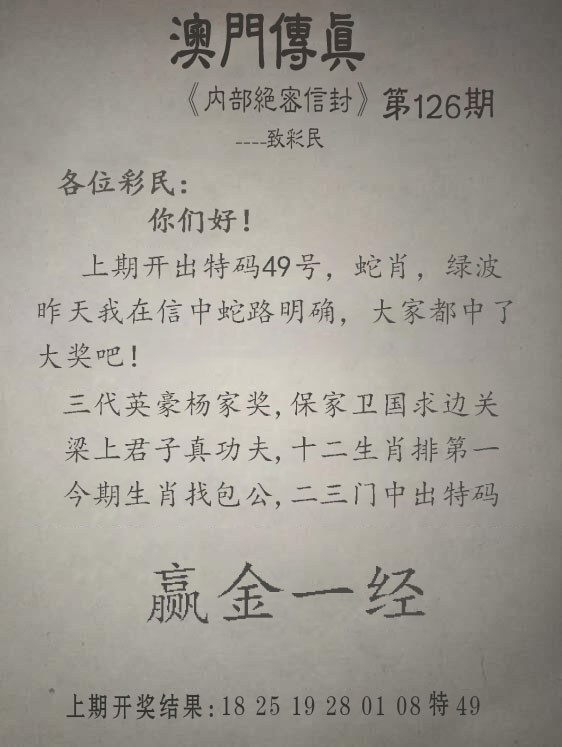 澳門傳眞
《内部絕密信封》第126期
----致彩民
各位彩民:
你们好!
上期开出特码49号,蛇肖,绿波
昨天我在信中蛇路明确,大家都中了
大奖吧!
三代英豪杨家奖,保家卫国求边关
梁上君子真功夫,十二生肖排第一
今期生肖找包公,二三门中出特码
赢金一经
上期开奖结果:18 25 19 28 01 08 特 49